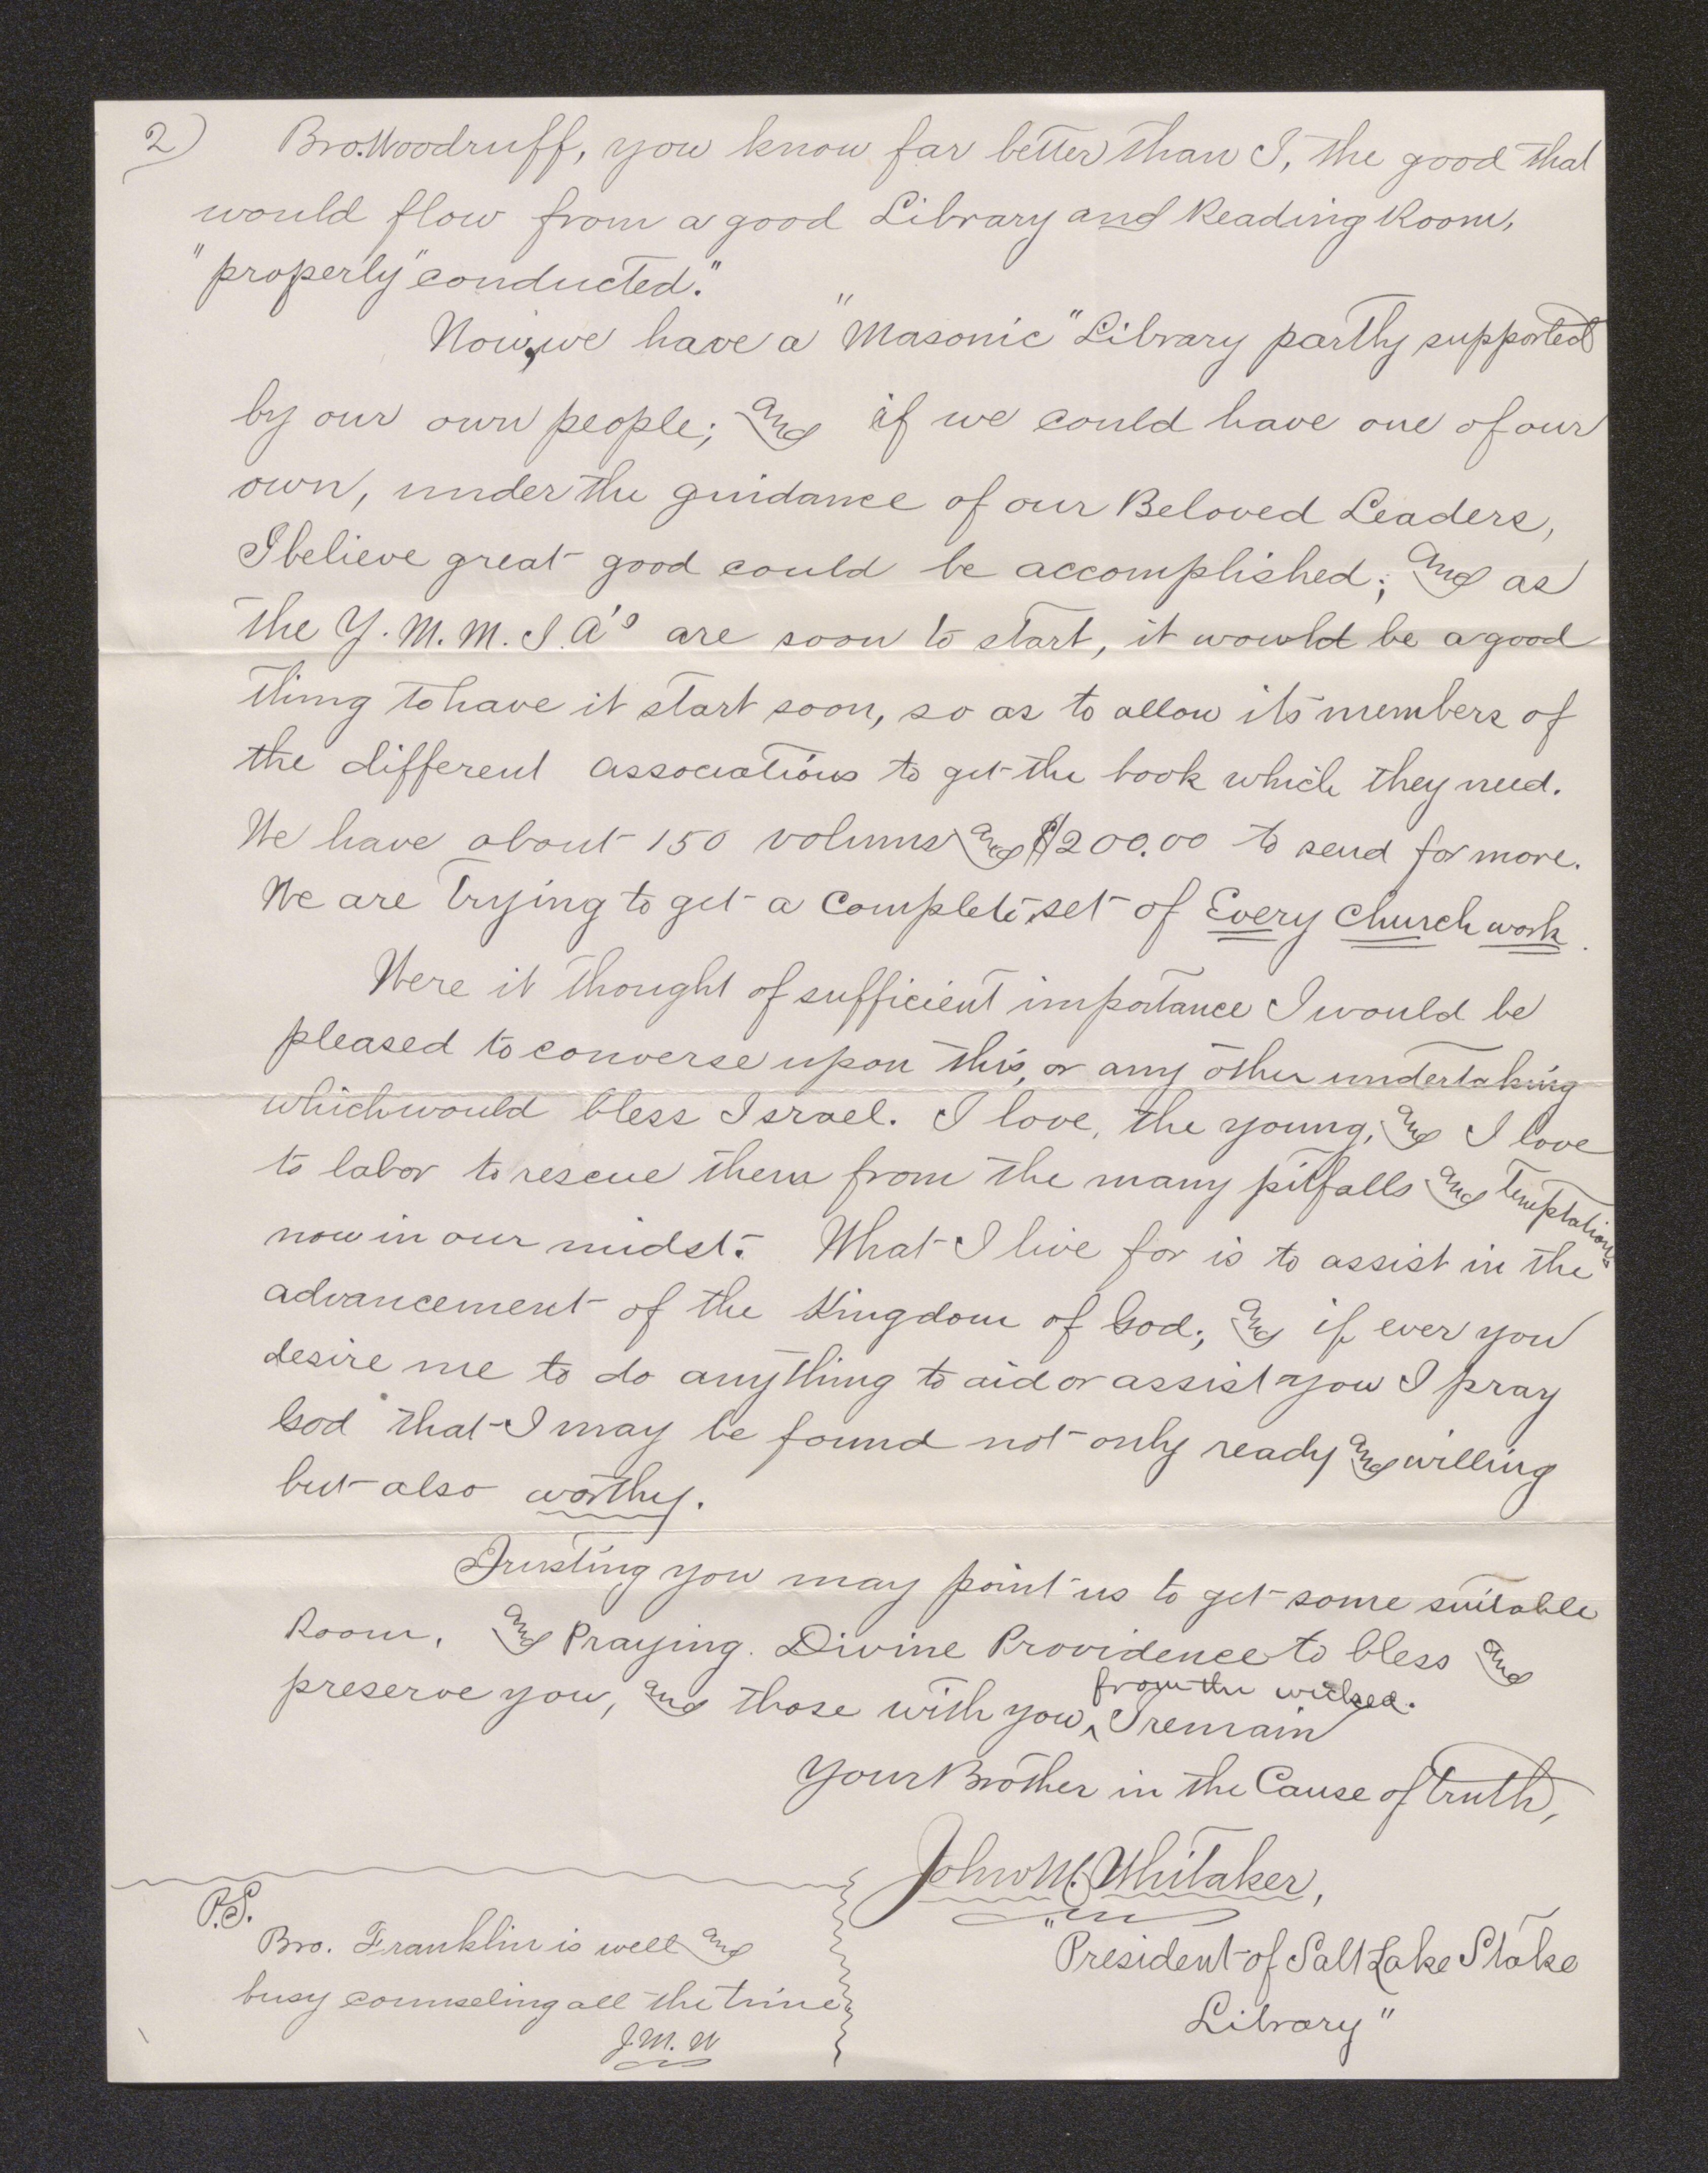 2)
Bro. Woodruff, you know far better than I, the good that
would flow from a good Library and Reading Room,
"properly" conducted."
Now, we have a "Masonic" Library partly supported
by our own people; and if we could have one of our
own, under the guidance of our Beloved Leaders,
I believe great good could be accomplished; and as
the Y. M. M. I. A's are soon to start, it would be a good
thing to have it start soon, so as to allow its members of
the different associations to get the book which they need.
We have about 150 volums and $200.00 to send for more.
We are Trying to get a Complete set of Every Church work.
Were it thought of sufficient importance I would be
pleased to converse upon this, or any other undertaking
which would bless Israel. I love, the young, and I love
to labor to rescue them from the many pitfalls and temptations
now in our midst. What I live for is to assist in the
advancement of the Kingdom of God; and if ever you
desire me to do anything to aid or assist you I pray
God that I may be found not only ready and willing
but also worthy.
Trusting you may point us to get some suitable
Room, and Praying Divine Providence to bless and
preserve you, and those with you ^ from the wicked. I remain
Your Brother in the Cause of Truth,
John M. Whitaker,
"President of Salt Lake Stake
Library"
P.S.
Bro. Franklin is well and
busy counseling all the time
J. M. W